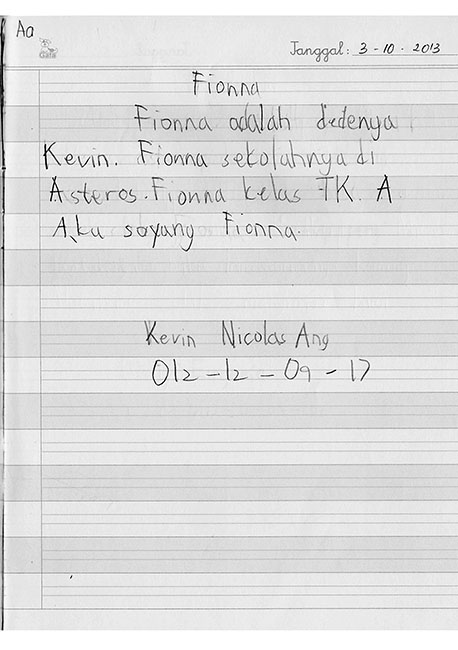 Aa
Tanggal: 3-10-2013
Fionna
Fionna adalah dedenya
Kevin. Fionna sekolahnya di
Asteros. Fionna kelas TK. A
Aku sayang Fionna.
Kevin Nicolas Ang
012-12-09-17